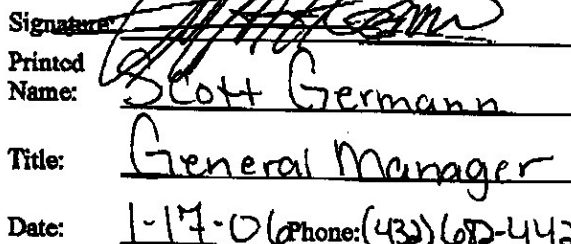 Signature:
Printed
Name: Scott Germann
Title: General Manager
Date: 1-17-06 Phone: (432)